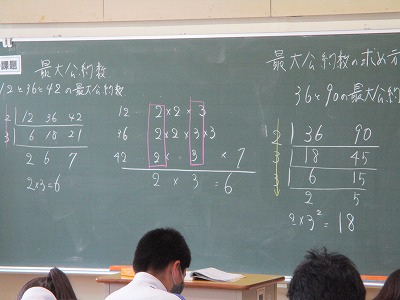 課題
最大公約数
12と36と42の最大公約数
2 12 36 42
3 6 18 21
2 6 7
2×3=6
12 2 × 2 × 3
36 2 × 2 × 3 × 3
42 2 × 3 × 7
2 × 3 = 6
最大公約数の求め方
36と90の最大公約
2 36 90
3 18 45
3 6 15
2 5
2×3²=18